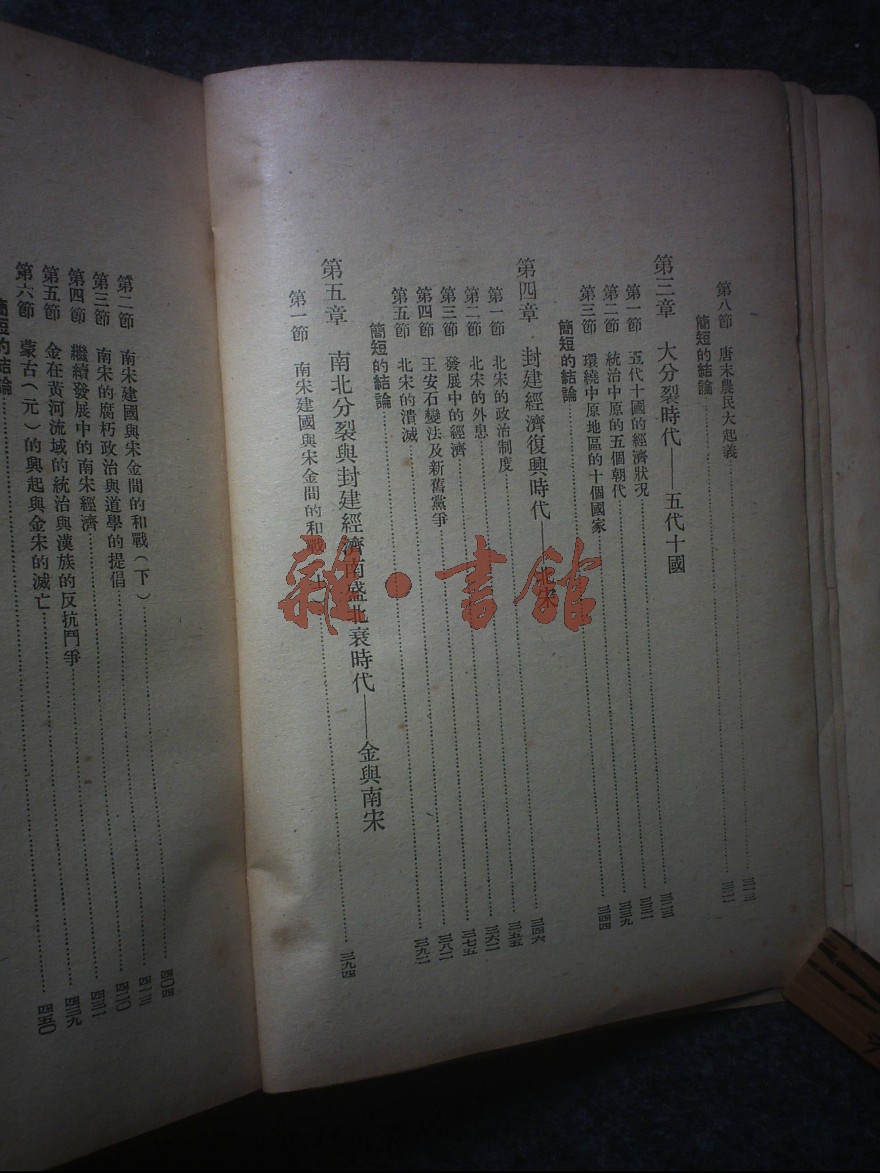 第八節 唐末農民大起義
簡短的結論
第三章 大分裂時代——五代十國
第一節 五代十國的經濟狀况
第二節 統治中原的五個朝代
第三節 環繞中原地區的十個國家
簡短的結論
第四章 封建經濟復興時代——北宋
第一節 北宋的政治制度
第二節 北宋的外患
第三節 發展中的經濟
第四節 王安石變法及新舊黨爭
第五節 北宋的潰滅
簡短的結論
第五章 南北分裂與封建經濟南盛北衰時代——金與南宋
第一節 南宋建國與宋金間的和戰 三九四
第二節 南宋建國與宋金間的和戰(下) 四〇四
第三節 南宋的腐朽政治與道學的提倡 四一三
第四節 繼續發展中的南宋經濟 四二〇
第五節 金在黃河流域的統治與漢族的反抗鬥爭
第六節 蒙古(元)的興起與金宋的滅亡 四三九
簡短的結論 四五〇
雜·書館